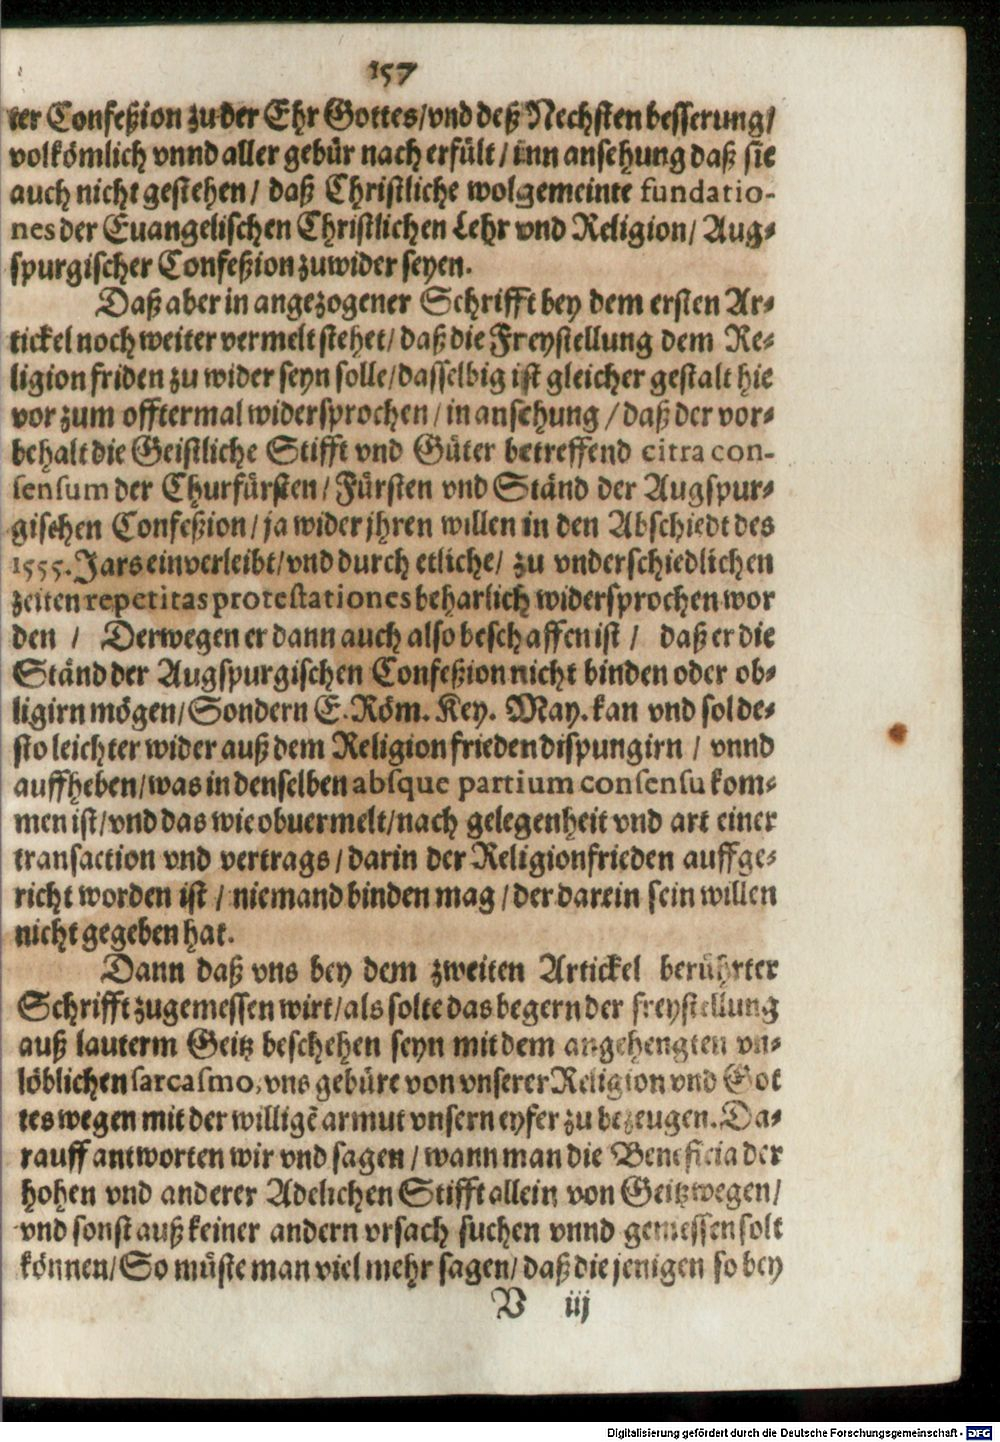 157
ter Confeßion zu der Ehr Gottes/vnd deß Nechsten besserung/
volkömlich vnnd aller gebür nach erfült/inn ansehung daß sie
auch nicht gestehen/ daß Christliche wolgemeinte fundatio-
nes der Euangelischen Christlichen Lehr vnd Religion/ Aug-
spurgischer Confeßion zuwider seyen.
Daß aber in angezogener Schrifft bey dem ersten Ar-
tickel noch weiter vermelt stehet/ daß die Freystellung dem Re-
ligion friden zu wider seyn solle/dasselbig ist gleicher gestalt hie
vor zum offtermal widersprochen/in ansehung/daß der vor-
behalt die Geistliche Stifft vnd Güter betreffend citra con-
sensum der Churfürsten/Fürsten vnd Ständ der Augspur-
gischen Confeßion/ja wider jhren willen in den Abschiedt des
1555. Jars einverleibt/vnd durch etliche/ zu vnderschiedlichen
zeiten repetitas protestationes beharlich widersprochen wor
den / Derwegen er dann auch also beschaffen ist / daß er die
Ständ der Augspurgischen Confeßion nicht binden oder ob-
ligirn mögen/Sondern E. Röm. Key. May. kan vnd sol de-
sto leichter wider auß dem Religion frieden dispungirn / vnnd
auffheben/was in denselben absque partium consensu kom-
men ist/vnd das wie obuermelt/nach gelegenheit vnd art einer
transaction vnd vertrags/darin der Religionfrieden auffge-
richt worden ist / niemand binden mag/der darein sein willen
nicht gegeben hat.
Dann daß vns bey dem zweiten Artickel berührter
Schrifft zugemessen wirt/als solte das begern der freystellung
auß lauterm Geitz beschehen seyn mit dem angehengten vn-
löblichen sarcasmo, vns gebüre von vnserer Religion vnd Got
tes wegen mit der willigẽ armut vnsern eyfer zu bezeugen. Da-
rauff antworten wir vnd sagen/wann man die Beneficia der
hohen vnd anderer Adelichen Stifft allein von Geitz wegen/
vnd sonst auß keiner andern vrsach suchen vnnd geniessen solt
können/So müste man viel mehr sagen/ daß die jenigen so bey
V iij
Digitalisierung gefördert durch die Deutsche Forschungsgemeinschaft - DFG